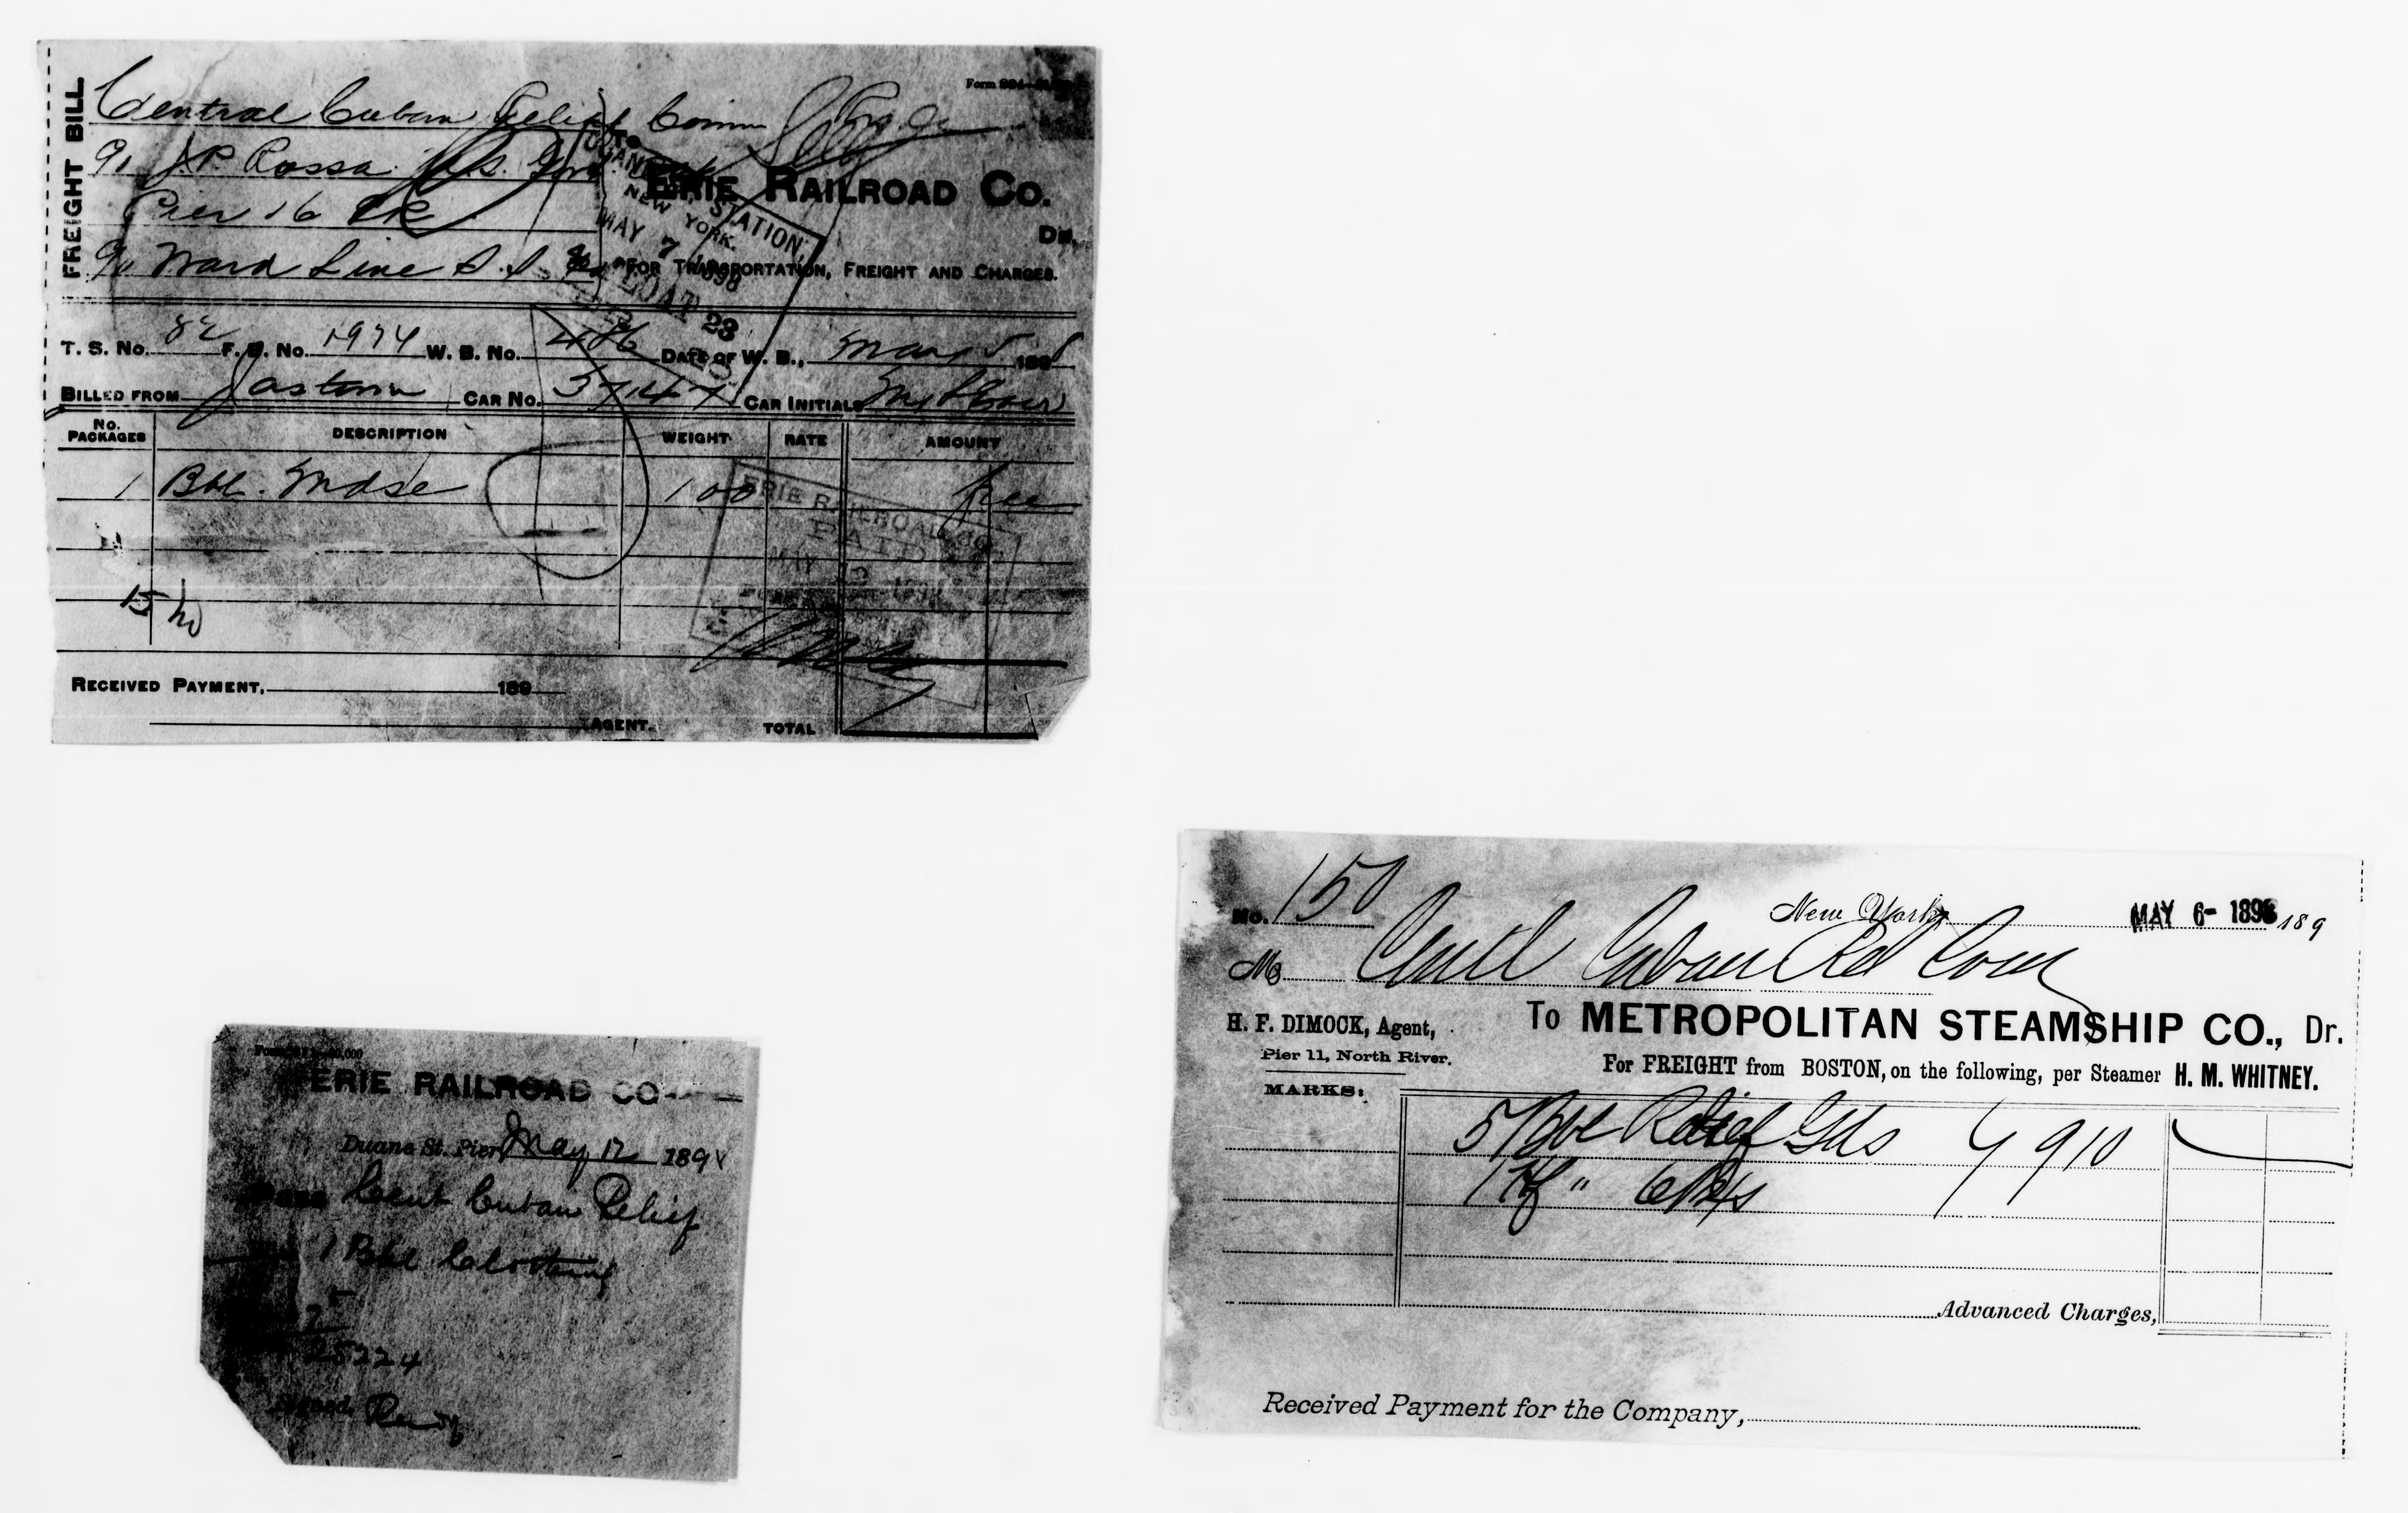 FREIGHT BILL.
Form
Central Cuban Relief Comm
J.P. Rossa
To
ERIE RAILROAD CO.
Pier 16 ER
Dr.
Ward Line S.S.
FOR TRANSPORTATION, FREIGHT AND CHARGES.
STATION,
NEW YORK.
MAY 7 1898
FLOAT 23
T. S. No. 82 F. B. No. 1974 W. B. No. 486 DATE OF W. B., May 5 1898
BILLED FROM Jastown CAR No. 57147 CAR INITIALS
No. PACKAGES DESCRIPTION WEIGHT RATE AMOUNT
1 Bbl. Mdse 100 free
ERIE RAILROAD CO.
PAID
MAY 12 1898
15
RECEIVED PAYMENT, 189
AGENT. TOTAL
No. 150
New York, MAY 6- 1898 189
M Centl Cuban Rel Com
H. F. DIMOCK, Agent,
Pier 11, North River.
To METROPOLITAN STEAMSHIP CO., Dr.
For FREIGHT from BOSTON, on the following, per Steamer H. M. WHITNEY.
MARKS:
5 Bbl Relief Gds 910
1 Hf "
Advanced Charges,
Received Payment for the Company,
Form 000
ERIE RAILROAD CO
Duane St. Pier May 12 1898
Cent Cuban Relief
1 Bbl Clothing
7
25224
Signed,